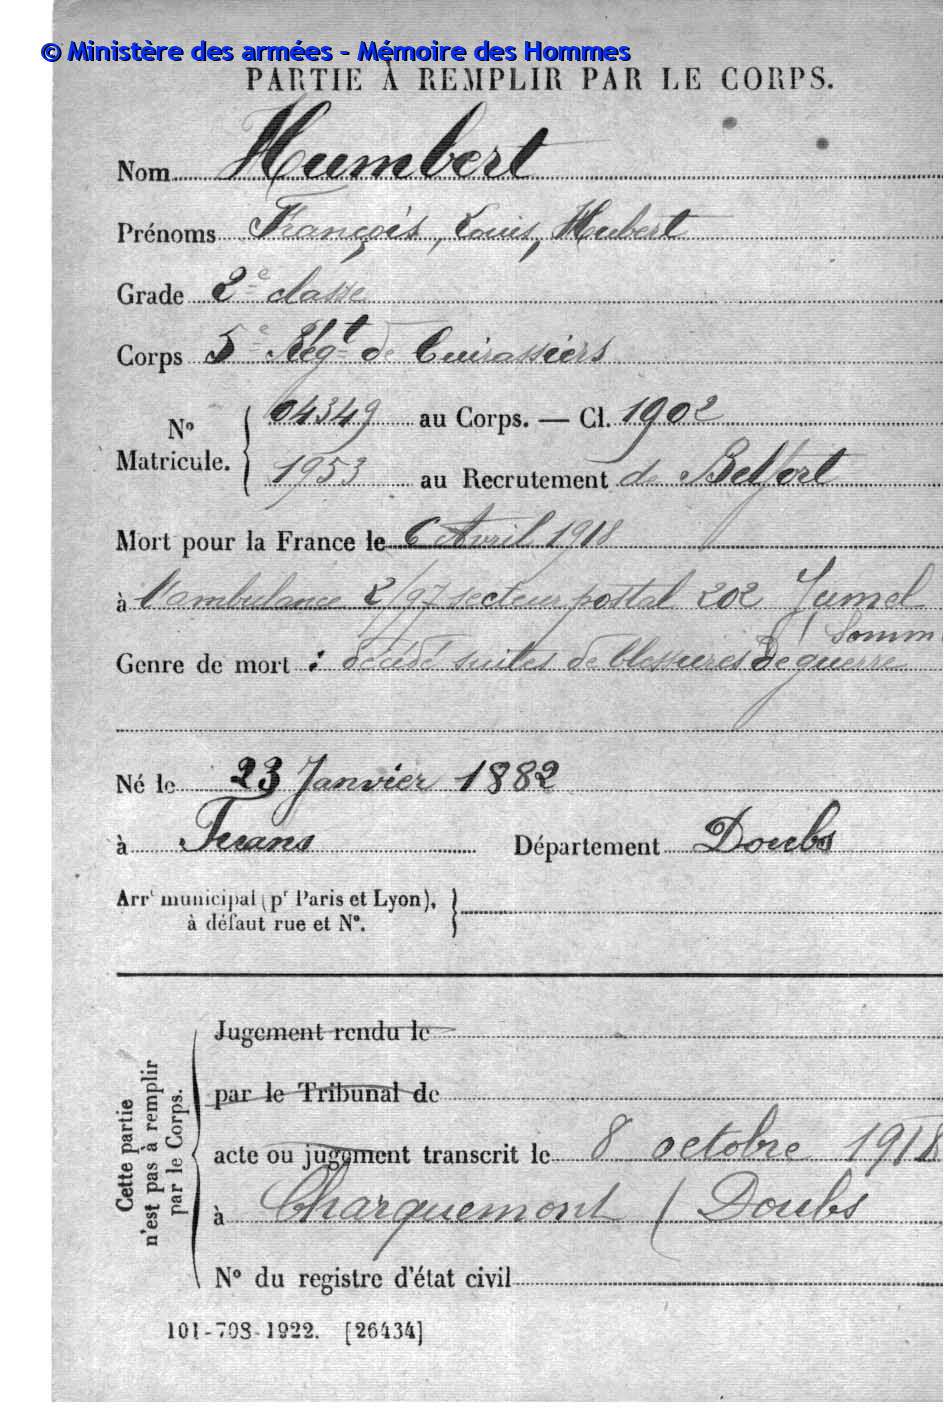 © Ministère des armées - Mémoire des Hommes
PARTIE À REMPLIR PAR LE CORPS.
Nom Humbert
Prénoms François, Louis, Hubert
Grade 2e classe
Corps 5e Régt de Cuirassiers
No Matricule. { 04349 au Corps. — Cl. 1902
1953 au Recrutement de Belfort
Mort pour la France le 6 Avril 1918
à l'ambulance 2/97 secteur postal 202 Jumel
Somm
Genre de mort : décédé suites de blessures de guerre
Né le 23 Janvier 1882
à Département Doubs
Arrt municipal (pr Paris et Lyon), }
à défaut rue et No.
Cette partie
n'est pas à remplir
par le Corps.
Jugement rendu le
par le Tribunal de
acte ou jugement transcrit le 8 octobre 1918
à Charquemont (Doubs
No du registre d'état civil
101-708-1922. [26434]